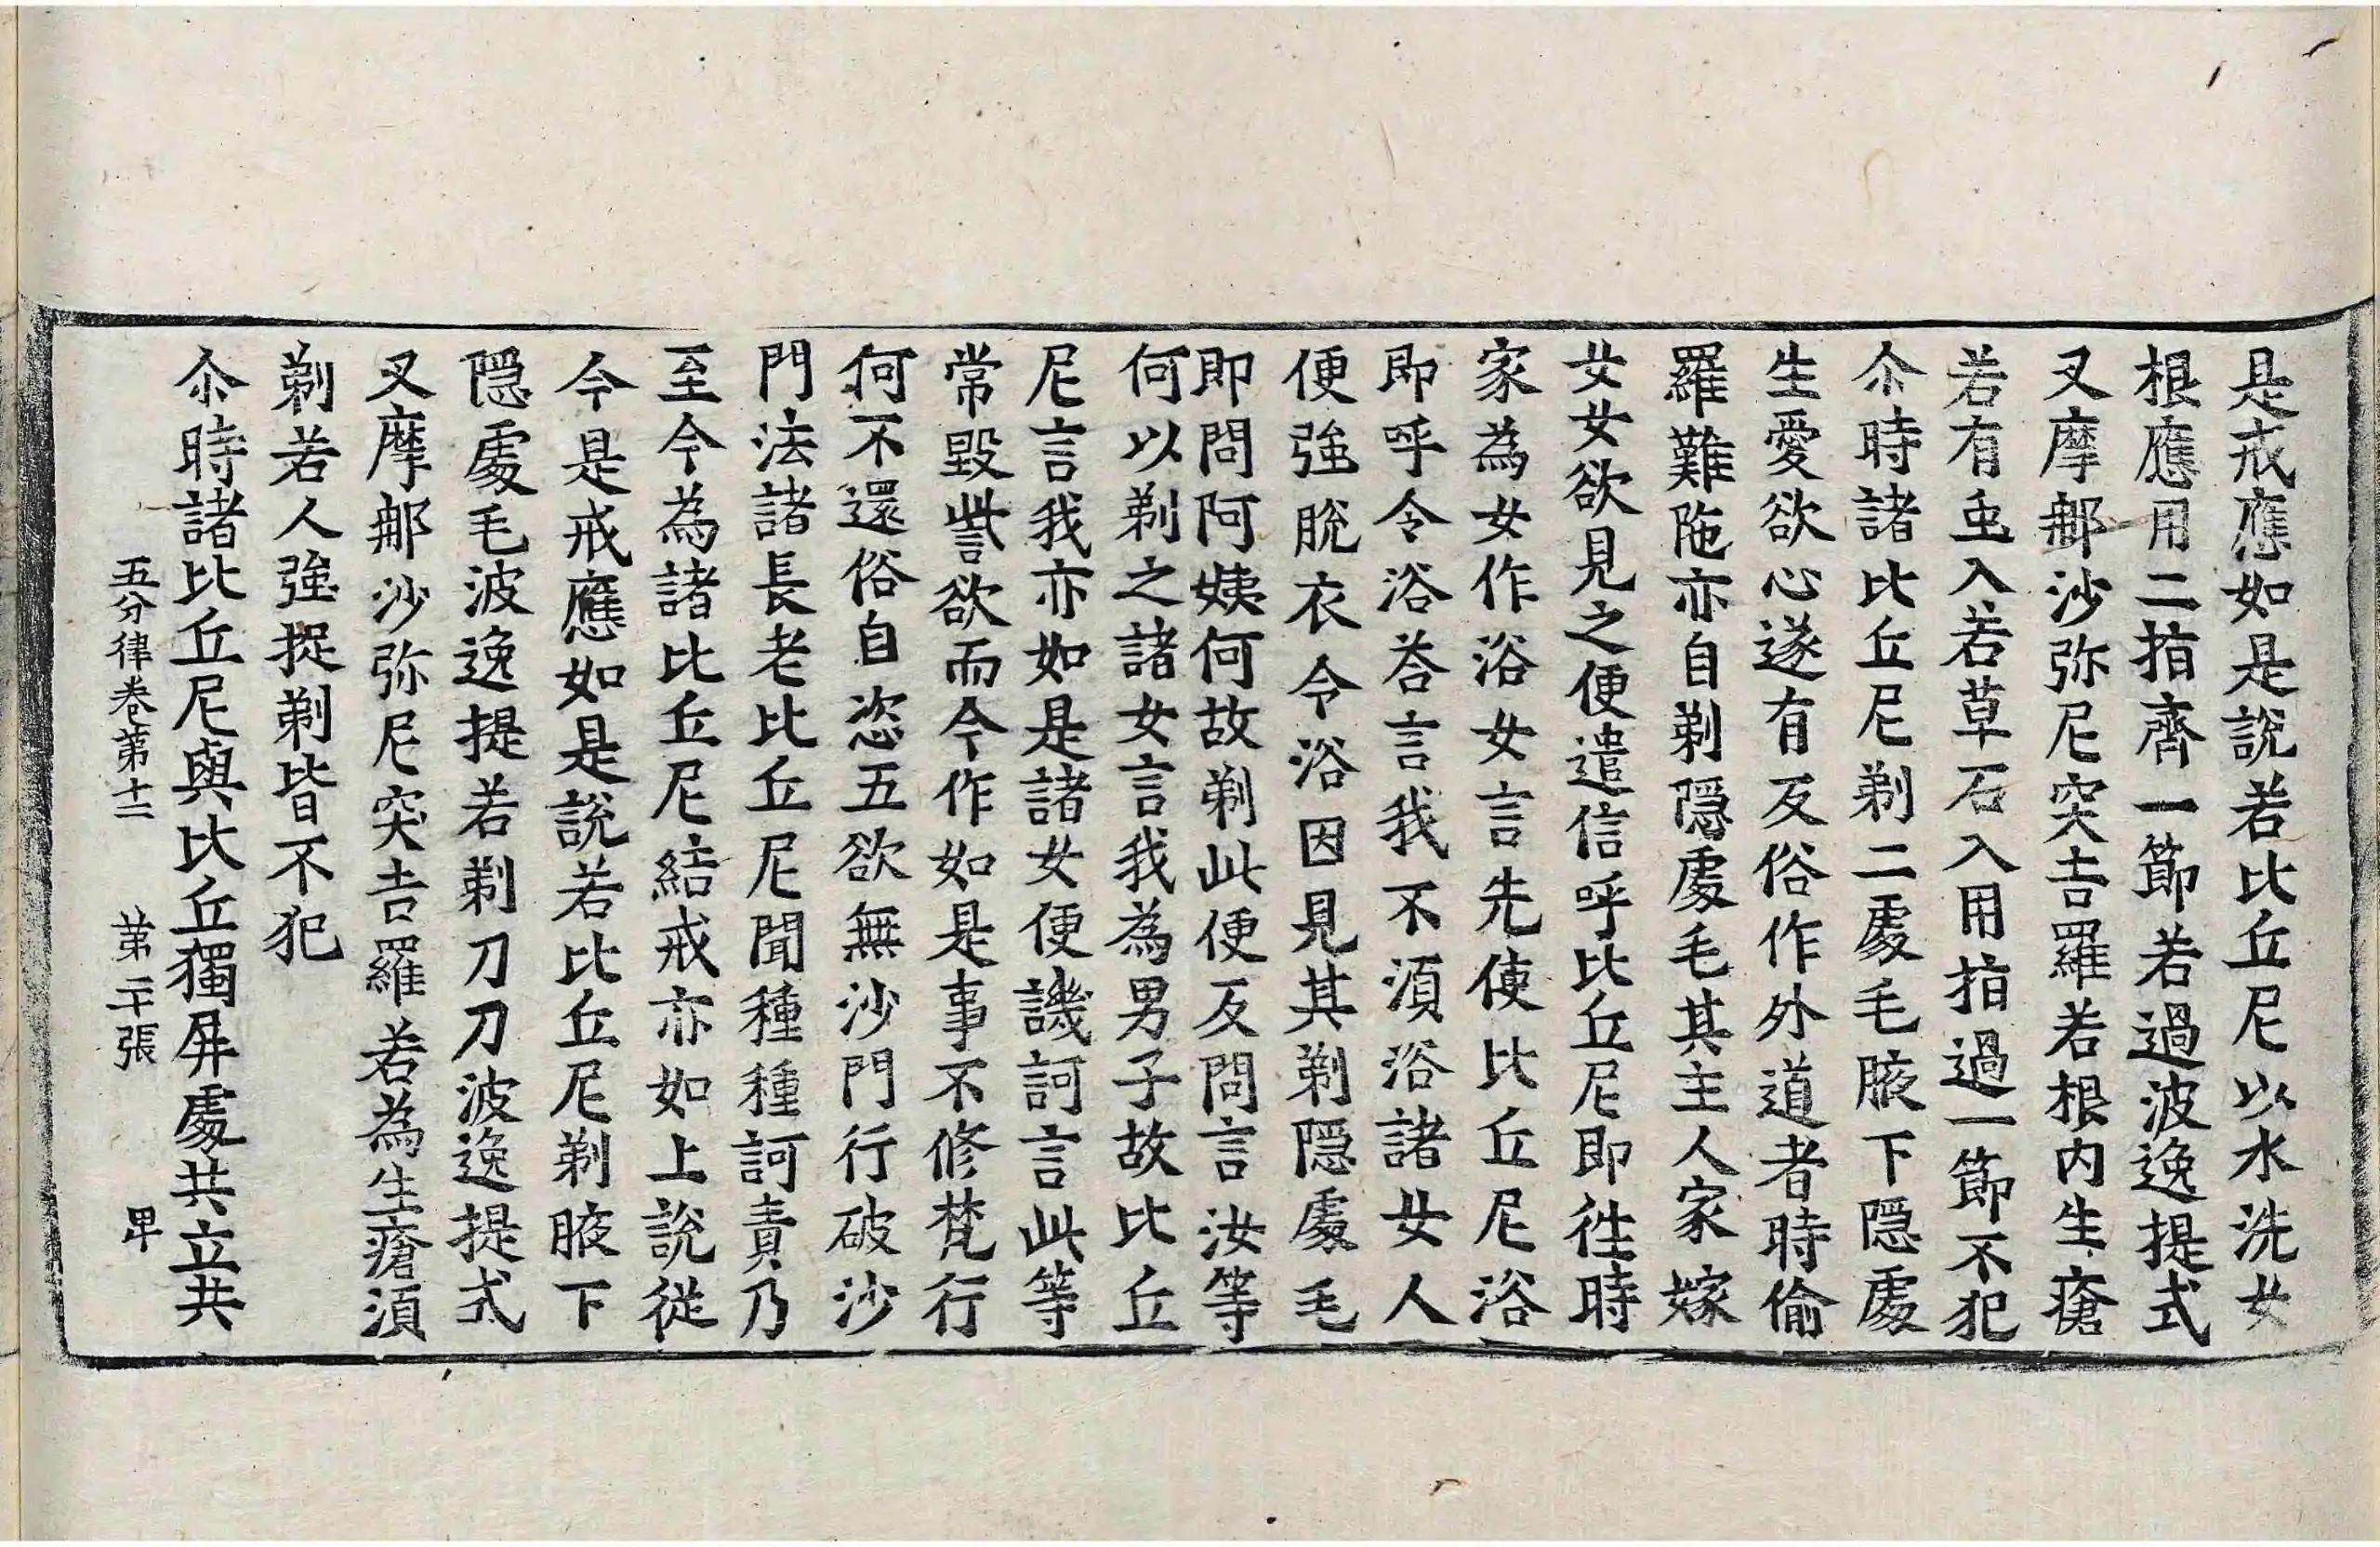 是戒應如是說若比丘尼以水洗女
根應用二指齊一節若過波逸提式
叉摩𨚗沙弥尼突吉羅若根内生瘡
若有虫入若草石入用指過一節不犯
尒時諸比丘尼剃二處毛腋下隱處
生愛欲心遂有反俗作外道者時偷
羅難陁亦自剃隱處毛其主人家嫁
女女欲見之便遣信呼比丘尼即往時
家為女作浴女言先使比丘尼浴
即呼令浴荅言我不湏浴諸女人
便強脫衣令浴因見其剃隱處毛
即問阿姨何故剃此便反問言汝等
何以剃之諸女言我為男子故比丘
尼言我亦如是諸女便譏訶言此等
常毀訾欲而今作如是事不修梵行
何不還俗自恣五欲無沙門行破沙
門法諸長老比丘尼聞種種訶責乃
至今為諸比丘尼結戒亦如上說從
今是戒應如是說若比丘尼剃腋下
隱處毛波逸提若剃刀刀波逸提式
叉摩𨚗沙弥尼突吉羅若為生瘡湏
剃若人強捉剃皆不犯
尒時諸比丘尼與比丘獨屏處共立共
五分律卷第十二 第二十張